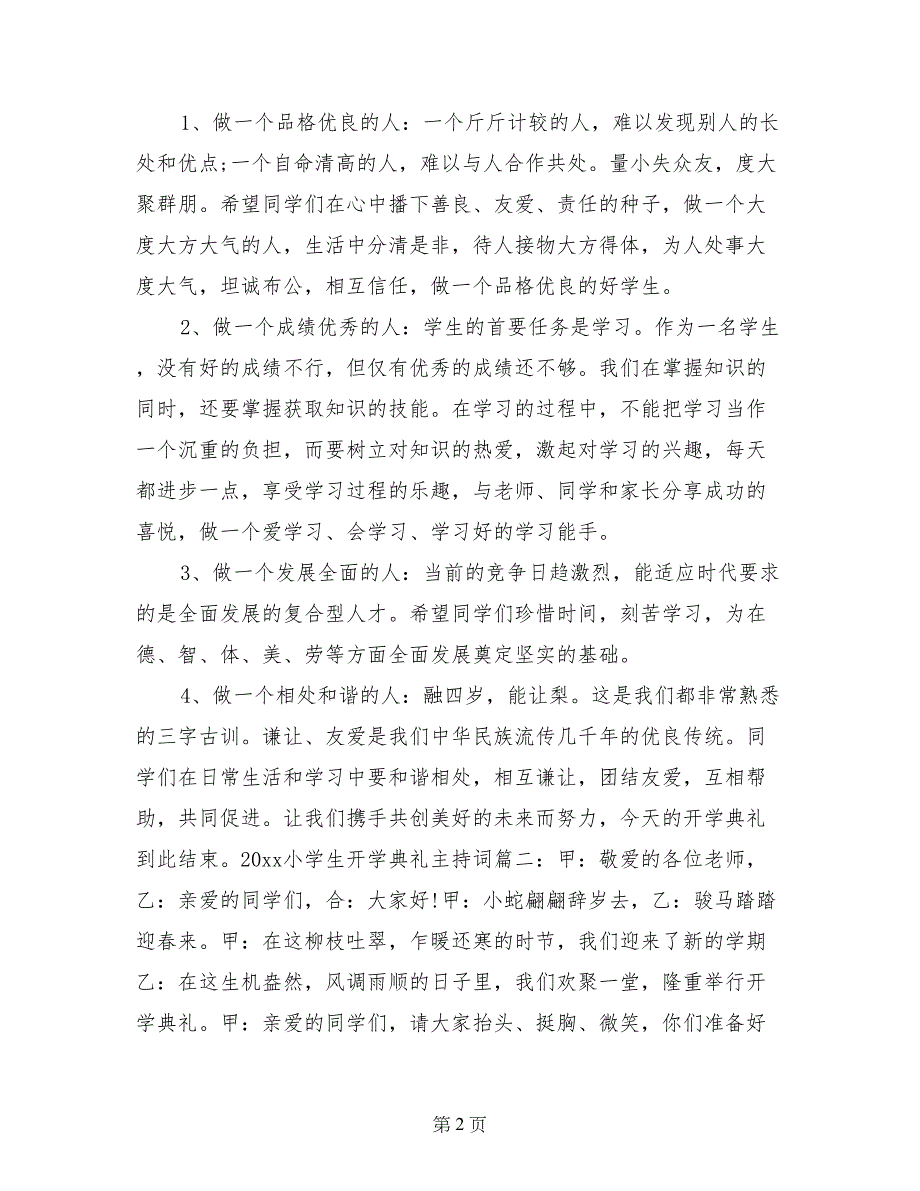 1、做一个品格优良的人：一个斤斤计较的人，难以发现别人的长
处和优点;一个自命清高的人，难以与人合作共处。量小失众友，度大
聚群朋。希望同学们在心中播下善良、友爱、责任的种子，做一个大
度大方大气的人，生活中分清是非，待人接物大方得体，为人处事大
度大气，坦诚布公，相互信任，做一个品格优良的好学生。
2、做一个成绩优秀的人：学生的首要任务是学习。作为一名学生
，没有好的成绩不行，但仅有优秀的成绩还不够。我们在掌握知识的
同时，还要掌握获取知识的技能。在学习的过程中，不能把学习当作
一个沉重的负担，而要树立对知识的热爱，激起对学习的兴趣，每天
都进步一点，享受学习过程的乐趣，与老师、同学和家长分享成功的
喜悦，做一个爱学习、会学习、学习好的学习能手。
3、做一个发展全面的人：当前的竞争日趋激烈，能适应时代要求
的是全面发展的复合型人才。希望同学们珍惜时间，刻苦学习，为在
德、智、体、美、劳等方面全面发展奠定坚实的基础。
4、做一个相处和谐的人：融四岁，能让梨。这是我们都非常熟悉
的三字古训。谦让、友爱是我们中华民族流传几千年的优良传统。同
学们在日常生活和学习中要和谐相处，相互谦让，团结友爱，互相帮
助，共同促进。让我们携手共创美好的未来而努力，今天的开学典礼
到此结束。20xx小学生开学典礼主持词篇二：甲：敬爱的各位老师，
乙：亲爱的同学们，合：大家好!甲：小蛇翩翩辞岁去，乙：骏马踏踏
迎春来。甲：在这柳枝吐翠，乍暖还寒的时节，我们迎来了新的学期
乙：在这生机盎然，风调雨顺的日子里，我们欢聚一堂，隆重举行开
学典礼。甲：亲爱的同学们，请大家抬头、挺胸、微笑，你们准备好
第 2 页